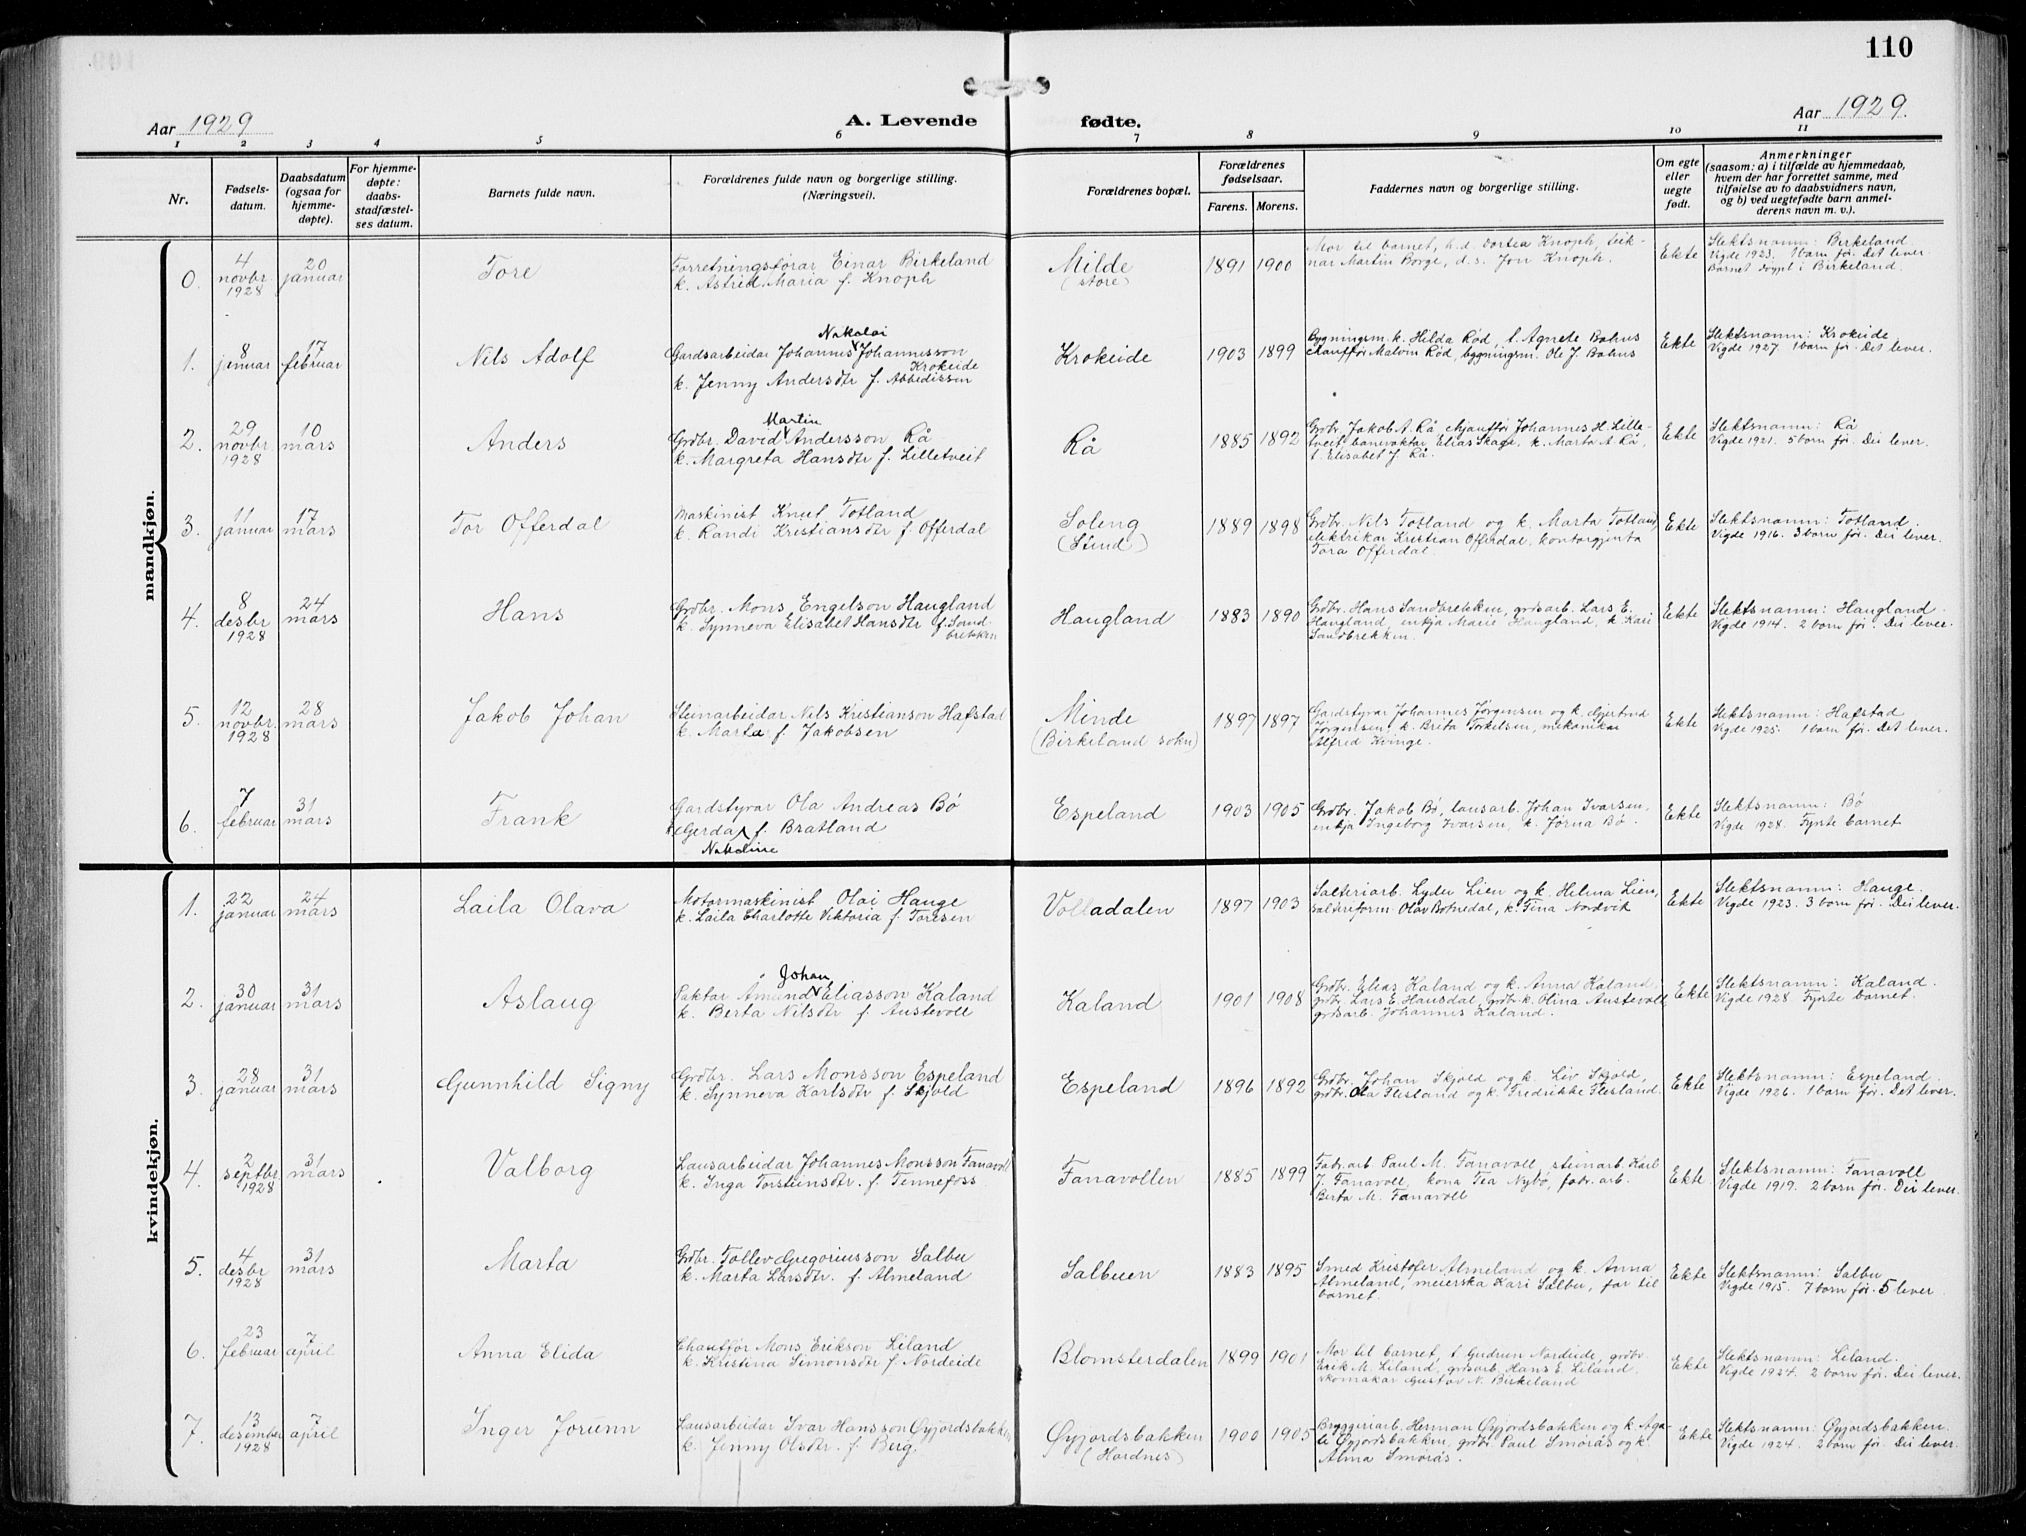 110
Aar 1929
A. Levende fødte.
Aar 1929.
1 2 3 4 5 6 7 8 9 10 11
Nr.
Fødsels-
datum.
Daabsdatum
(ogsaa for
hjemme-
døpte).
For hjemme-
døpte:
daabs-
stadfæstel-
ses datum.
Barnets fulde navn.
Forældrenes fulde navn og borgerlige stilling.
(Næringsvei).
Forældrenes bopæl.
Forældrenes
fødselsaar.
Farens. Morens.
Faddernes navn og borgerlige stilling.
Om egte
eller
uegte
født.
Anmerkninger
(saasom: a) i tilfælde av hjemmedaab,
hvem der har forrettet samme, med
tilføielse av to daabsvidners navn,
og b) ved uegtefødte barn anmel-
derens navn m. v.).
mandkjøn.
0.
4
novbr
1928
20
januar
Tore
Forretningsførar Einar Birkeland
k. Astrid Maria f. Knoph
Milde
(store)
1891 1900
Mor til barnet, h.d. Dortea Knoph, teik-
nar Martin Borge, d.s. Jon Knoph.
Ekte
Slektsnamn: Birkeland
Vigde 1923. 1 born før. Det lever.
Barnet døypt i Birkeland.
1.
8
januar
17
februar
Nils Adolf
Nikolai
Gardsarbeidar Johannes Johannesson
Krokeide
k. Jenny Andersdtr f. Abbedissen
Krokeide
1903 1899
Bygningsm. k. Hilda Rød, t. Agnete Bahus
chauffør Malvin Rød, bygningsm. Ole J. Bahus
Ekte
Slektsnamn: Krokeide
Vigde 1927. 1 born før. Det lever.
2.
29
novbr
1928
10
mars
Anders
Martin
Grdbr. David Andersson Rå
k. Margreta Hansdtr f. Lilletveit
Rå
1885 1892
Grdbr. Jakob A. Rå, sjauffør Johannes H. Lille-
tveit, banevaktar Elias Skage, k. Marta A. Rå,
t. Elisabet J. Rå.
Ekte
Slektsnamn: Rå
Vigde 1921. 5 born før. Dei lever.
3.
11
januar
17
mars
Tor Offerdal
Maskinist Knut Totland
k. Randi Kristiansdtr f. Offerdal
Soleng
(Stend)
1889 1898
Grdbr. Nils Totland og k. Marta Totland
elektrikar Kristian Offerdal, kontorgjenta
Tora Offerdal.
Ekte
Slektsnamn: Totland.
Vigde 1916. 3 born før. Dei lever.
4.
8
desbr
1928
24
mars
Hans
Grdbr. Mons Engelson Haugland
k. Synneva Elisabet Hansdtr f. Sand-
brekken
Haugland
1883 1890
Grdbr. Hans Sandbrekken, grdsarb. Lars E.
Haugland, enkja Marie Haugland, k. Kari
Sandbrekken.
Ekte
Slektsnamn: Haugland.
Vigde 1914. 2 born før. Dei lever.
5.
12
novbr.
1928
28
mars
Jakob Johan
Steinarbeidar Nils Kristianson Hafstad
k. Marta f. Jakobsen
Minde
(Birkeland sokn)
1897 1897
Gardstyrar Johannes Jørgensen og k. Gjertrud
Jørgensen, k. Brita Torkelsen, mekanikar
Alfred Kvinge.
Ekte
Slektsnamn: Hafstad
Vigde 1925. 1 born før. Det lever.
6.
7
februar
31
mars
Frank
Gardstyrar Ola Andreas Bø
k. Gerda f. Bratland
Nikoline
Espeland
1903 1905
Grdbr. Jakob Bø, lausarb. Johan Ivarsen,
enkja Ingeborg Ivarsen, k. Jørna Bø.
Ekte
Slektsnamn: Bø
Vigde 1928. Fyrste barnet
kvindekjøn.
1.
22
januar
24
mars
Laila Olava
Motormaskinist Olai Hauge
k. Laila Charlotte Viktoria f. Toresen
Volladalen
1897 1903
Salteriarb. Lyder Lien og k. Helma Lien,
salteriform. Olav Botnedal, k. Tina Nordvik
Ekte
Slektsnamn: Hauge.
Vigde 1923. 3 born før. Dei lever.
2.
30
januar
31
mars
Aslaug
Johan
Paktar Åmund Eliasson Kaland
k. Berta Nilsdtr f. Austevoll
Kaland
1901 1908
Grdbr. Elias Kaland og k. Anna Kaland,
grdbr. Lars E. Hausdal, grdbr. k. Olina Austevoll,
grdsarb. Johannes Kaland.
Ekte
Slektsnamn: Kaland.
Vigde 1928. Fyrste barnet.
3.
28
januar
31
mars
Gunnhild Signy
Grdbr. Lars Monsson Espeland
k. Synneva Karlsdtr f. Skjold
Espeland
1896 1892
Grdbr. Johan Skjold og k. Liv Skjold,
grdbr. Ola Flesland og k. Fredrikke Flesland.
Ekte
Slektsnamn: Espeland.
Vigde 1926. 1 born før. Det lever.
4.
2
septbr
1928
31
mars
Valborg
Lausarbeidar Johannes Monsson Fanavoll
k. Inga Torsteinsdtr. f. Tennefoss
Fanavollen
1885 1899
Fabr.arb. Paul M. Fanavoll, steinarb. Karl
J. Fanavoll, kona Tea Nybø, fabr.arb.
Berta M. Fanavoll
Ekte
Slektsnamn: Fanavoll
Vigde 1919. 2 born før. Dei lever.
5.
4
desbr
1928
31
mars
Marta
Grdbr. Tollev Gregoriusson Salbu
k. Marta Larsdtr. f. Almeland
Salbuen
1883 1895
Smed Kristofer Almeland og k. Anna
Almeland, meierska Kari Salbu, far til
barnet.
Ekte
Slektsnamn: Salbu
Vigde 1915. 7 born før. 5 lever
6.
23
februar
7
april
Anna Elida
Chauffør Mons Erikson Liland
k. Kristina Simonsdtr f. Nordeide
Blomsterdalen
1899 1901
Mor til barnet, t. Gudrun Nordeide, grdbr.
Erik M. Liland, grdsarb. Hans E. Liland,
skomakar Gustav N. Birkeland
Ekte
Slektsnamn: Liland.
Vigde 1924. 2 born før. Dei lever.
7.
13
desember
1928
7
april
Inger Jorunn
Lausarbeidar Ivar Hansson Øyjordsbakken
k. Jenny Olsdtr. f. Berg.
Øyjordsbakken
(Hordnes)
1900 1905
Bryggeriarb. Herman Øyjordsbakken og k. Aga-
te Øyjordsbakken, grdbr. Paul Smørås og k.
Alma Smørås.
Ekte
Slektsnamn: Øyjordsbakken.
Vigde 1924. 2 born før. Dei lever.